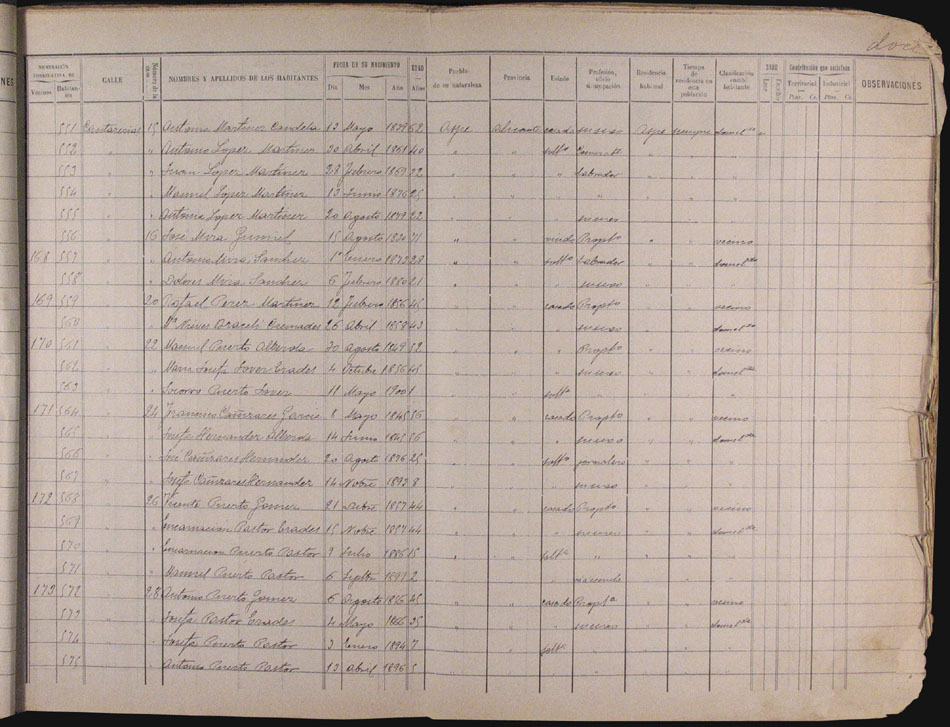 doce
NUMERACIÓN CORRELATIVA DE
Vecinos Habitantes
CALLE
Número de la casa
NOMBRES Y APELLIDOS DE LOS HABITANTES
FECHA DE SU NACIMIENTO
Día Mes Año
EDAD
Años
Pueblo de su naturaleza
Provincia
Estado
Profesión, oficio ú ocupación
Residencia habitual
Tiempo de residencia en esta población
Clasificación
habitante
SABE
Leer Escribir
Contribución que satisface
Territorial Industrial
Ptas. Cs. Ptas. Cs.
OBSERVACIONES
551 Cantareria 15 Antonia Martinez Candela 12 Mayo 1839 62 Aspe Alicante casada su sexo Aspe siempre
552 " " Antonio Lopez Martinez 20 Abril 1861 40 " "
553 " " Juan Lopez Martinez 28 Febrero 1869 32 " " " Labrador
554 " " Manuel Lopez Martinez 13 Junio 1876 25 " "
555 " " Antonia Lopez Martinez 20 Agosto 1879 22 " "
556 " 16 José Mira Gumiel 15 Agosto 1830 71 " " viudo Propto " " vecino
168 557 " " Antonio Mira Sanchez 1º Enero 1873 28 " " soltº Labrador
558 " " Dolores Mira Sanchez 6 Febrero 1880 21 " " " su sexo
169 559 " 20 Rafael Perez Martinez 12 Febrero 1856 45 " " casado Propto " " vecino
560 " " Mª Nieves Araceli Cremades 26 Abril 1858 43 " " " su sexo
170 561 " 22 Manuel Puerto Alberola 30 Agosto 1849 52 " " " Propto " " vecino
562 " " Maria Josefa Jover Erades 4 Octubre 1856 45 " " " su sexo
563 " " Socorro Puerto Jover 11 Mayo 1900 1 " " soltª
171 564 " 24 Francisco Cañizares Garcia 8 Mayo 1845 56 " " casado Propto " " vecino
565 " " Josefa Hernandez Alberola 14 Junio 1845 56 " " " su sexo
566 " " José Cañizares Hernandez 20 Agosto 1876 25 " " soltº jornalero
567 " " Josefa Cañizares Hernandez 14 Nobre 1893 8 " " " su sexo
172 568 " 26 Vicente Puerto Gomez 21 Octbre 1857 44 " " casado Propto " " vecino
569 " " Encarnacion Pastor Erades 15 Nobre 1857 44 " " " su sexo
570 " " Encarnacion Puerto Pastor 9 Julio 1886 15 " " soltª
571 " " Manuel Puerto Pastor 6 Septbre 1899 2 " "
173 572 " 28 Antonio Puerto Gomez 6 Agosto 1856 45 " " casado Propto " " vecino
573 " " Josefa Pastor Erades 4 Mayo 1866 35 " " " su sexo
574 " " Josefa Puerto Pastor 3 Enero 1894 7 " " soltª
575 " " Antonio Puerto Pastor 13 Abril 1896 5 " "